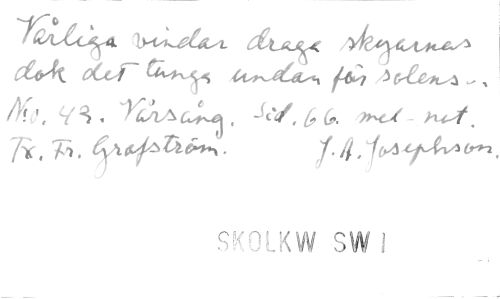 Vårliga vindar draga skyarnas
dok det tunga undan för solens...
No. 49. Vårsång. Sid. 66. mel-not.
Tx. Fr. Grafström. J. A. Josephson.
SKOLKW SW 1